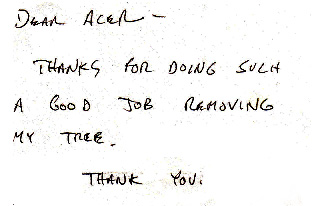 DEAR ACER –
THANKS FOR DOING SUCH
A GOOD JOB REMOVING
MY TREE.
THANK YOU.